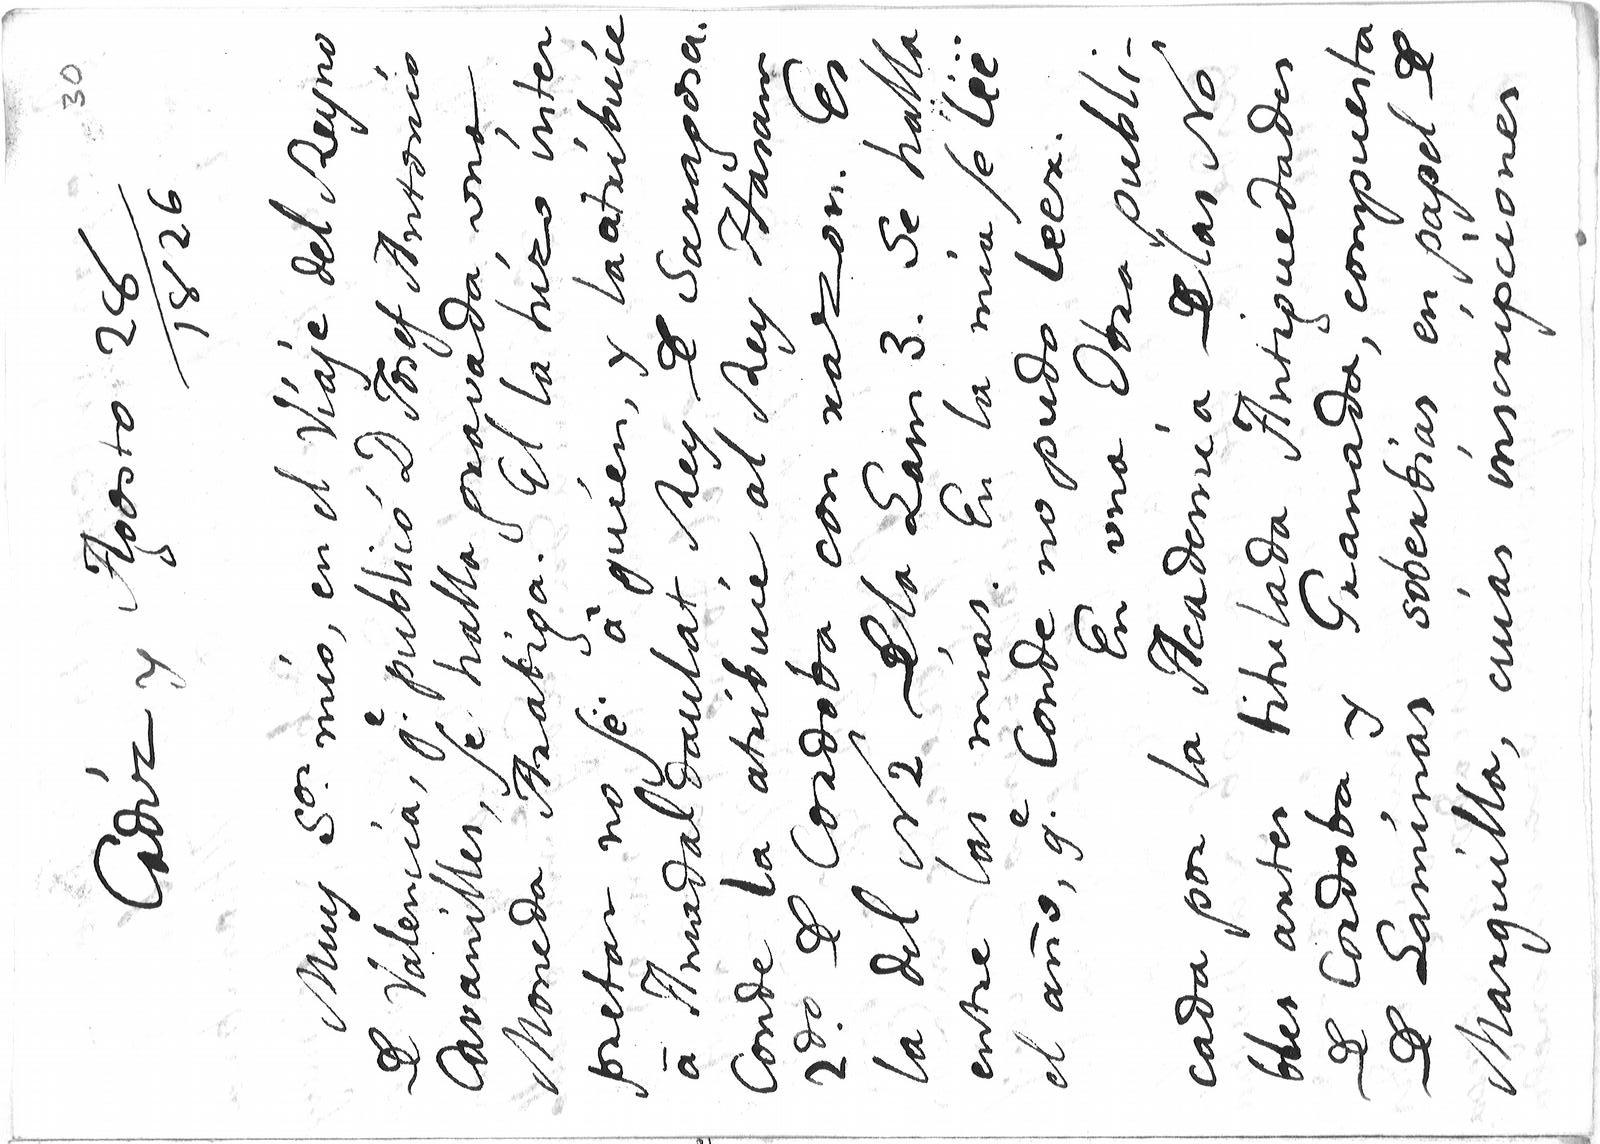 30
Cadiz y Agosto 28
1826
Muy Sor. mio, en el Viáje del Reyno
de Valencia, q.e publicó D Josef Antonio
Cavanilles, se halla gravada una
Moneda Arabiga. El la hizo inter
pretar no sé â quien, y la atribuie
â Amadaldaulat Rey de Zaragoza.
Conde la atribuie al Rey Haxam
2do. de Cordoba con razon. Es
la del N 2 de la Lam 3. Se halla
entre las mias. En la mia se leé
el año, q.e Conde no pudo leer.
En una Obra publi-
cada por la Academia de las No
bles artes titulada Antiguedades
de Cordoba y Granada, compuesta
de Laminas soberbias en papel de
Marquilla, cuias inscripciones